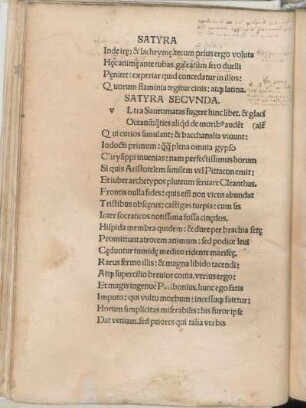 SATYRA
Inde irę; & lachrymę. tecum prius ergo voluta
Hęc animo ante tubas. galeatum sero duelli
Penitet: experiar quid concedatur in illos:
Quorum flaminia tegitur cinis: atq; latina.
SATYRA SECVNDA.
v Ltra Sauromatas fugere hinc libet. & glacialē
Oceanū: quoties aliqd de morib audēt
Qui curios simulant: & bacchanalia viuunt:
Indocti primum: qq̄ plena omnia gypso
Chrysippi inuenias: nam perfectissimus horum
Si quis Aristotelem similem vel Pittacon emit:
Et iubet archetypos pluteum seruare Cleanthas.
Frontis nulla fides: quis em̄ non vicus abundat
Tristibus obscęnis: castigas turpia: cum sis
Inter socraticos notissima fossa cinędos.
Hispida membra quidem: & durę per brachia setę
Promittunt atrocem animum: sed podice leui
Cęduntur tumidę medico ridente mariscę.
Rarus sermo illis: & magna libido tacendi:
Atq; supercilio breuior coma. verius ergo:
Et magis ingenue Peribonius. hunc ego fatis
Imputo: qui vultu morbum: incessuq; fatetur:
Horum simplicitas miserabilis: his furor ipse
Dat veniam. sed peiores qui talia verbis